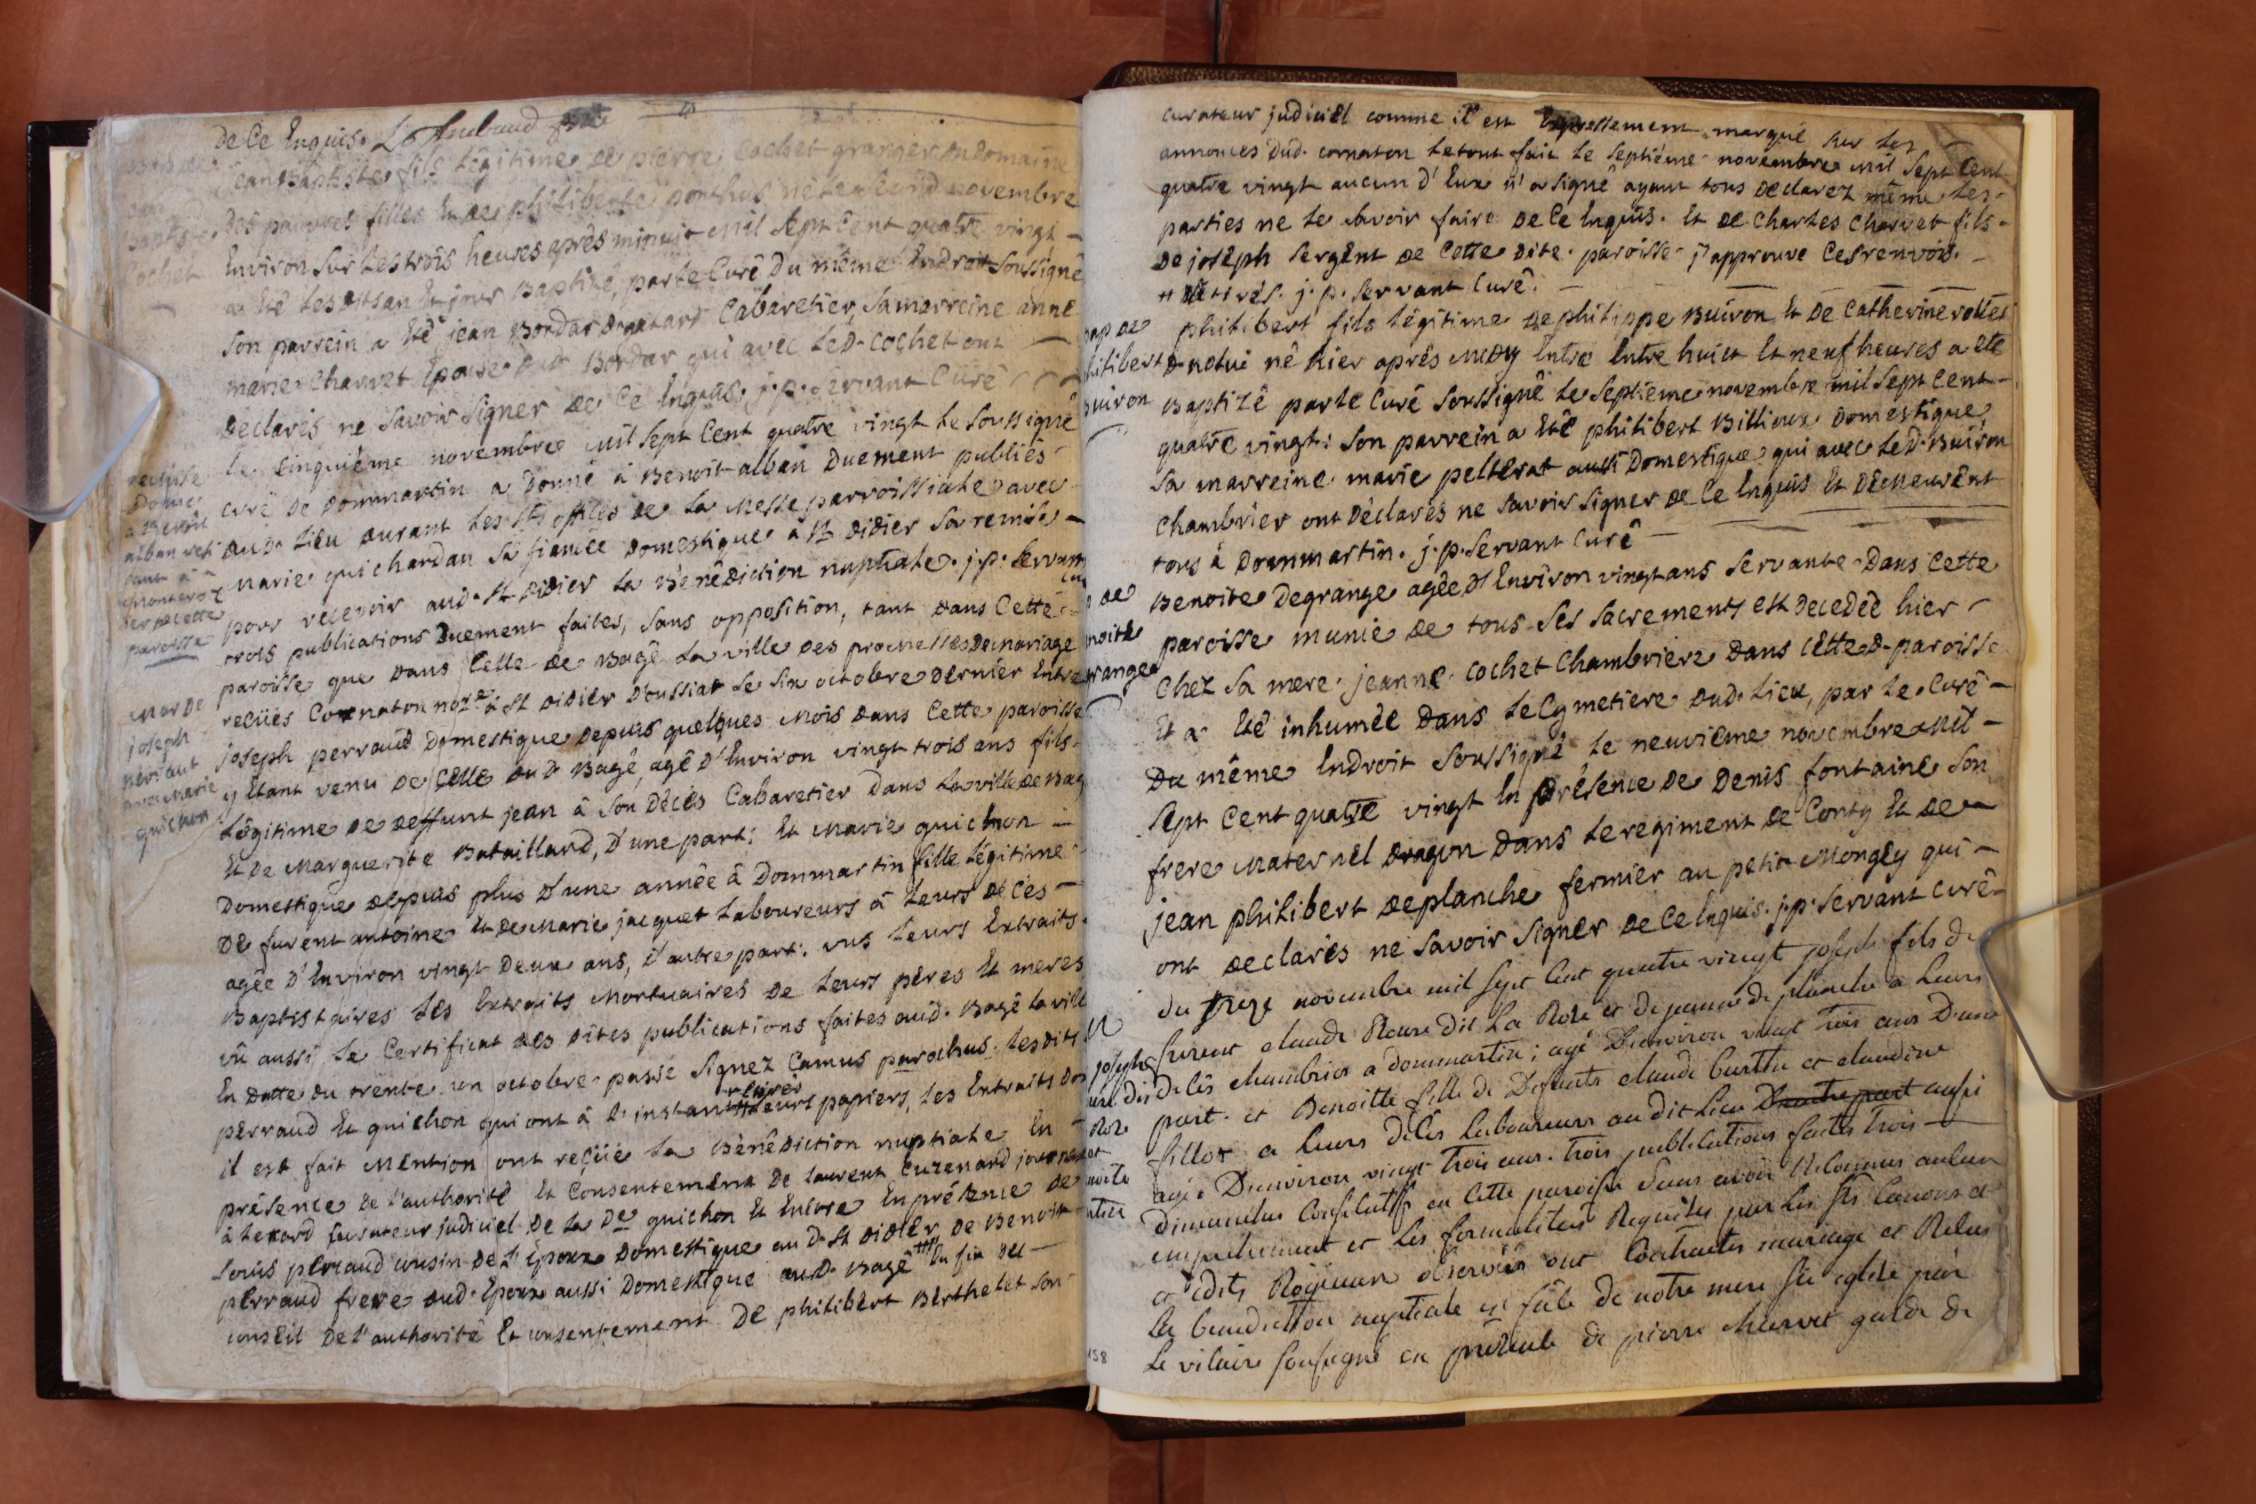 De Ce Enquis. Lt
jean Baptiste fils Légitime de pierre Cochet granger Du Domaine
Des pauvres filles Et de philiberte ponthus né Le novembre
Environ sur Les trois heures après minuit mil sept Cent quatre vingt
a Eté Les dits an Et jour Baptizé, par Le Curé Du même Endroit soussigné
son parrein a Eté jean Bordar Cabaretier, sa marreine anne
marie Charvet Epouse dud. Bordar qui avec Led. Cochet ont
Déclarés ne savoir signer de Ce Enquis. j. p. servant Curé
Baptiste
Cochet
remise
Donné
a Benoit
alban
paroisse
Le Cinquième novembre mil sept Cent quatre vingt Le soussigné
curé De Dommartin a Donné à Benoit alban Duement publiés
aud. Lieu durant Les Sts offices de La Messe parroissiale avec
Marie quichardan sa fiancée Domestique à St Didier sa remise
pour recevoir aud. St Didier La Bénédiction nuptiale. j. p. servant
Mar De
joseph
avec Marie
quichon
trois publications Duement faites, sans opposition, tant Dans Cette
paroisse que Dans Celle de Bagé La ville Des promesses De mariage
reçües Cornaton no.re à St Didier D'oussiat Le six octobre Dernier Entre
joseph perraud Domestique Depuis quelques Mois Dans Cette paroisse
y Etant venu De Celle dud. Bagé, agé D'Environ vingt trois ans fils
Légitime de deffunt jean à son Décés Cabaretier Dans La ville de Bagé
Et De Marguerite Bataillard, D'une part: Et Marie quichon
Domestique depuis plus D'une année à Dommartin fille Légitime
De furent antoine Et De Marie jacquet Laboureurs à Leurs décés
agée D'Environ vingt Deux ans, D'autre part: vus Leurs Extraits
Baptistaires Les Extraits Mortuaires de Leurs pères Et meres
vû aussi Le Certificat des dites publications faites aud. Bagé La ville
En Datte du trente un octobre passé signez Camus parochus. Lesdits
perraud Et quichon qui ont à L'instant retirés Leurs papiers, Les Extraits Dont
il est fait Mention ont reçüe La Bénédiction nuptiale En
présence De L'authorité Et Consentement De Laurent Cuzenard
curateur judiciel De La De quichon Et Encore En présence de
Louis perraud cousin De L'Epoux Domestique aud. St Didier, De Benoit
perraud frere dud. Epoux aussi Domestique aud. Bagé
conseil De L'authorité Et consentement De philibert Berthelet son
curateur judiciel comme il est Expressement marqué sur Les
annonces Dud. Cornaton Le tout fait Le septième novembre mil sept Cent
quatre vingt aucun D'Eux n'a signé ayant tous Declarez même Les
parties ne Le savoir faire De Ce Enquis. Et de Charles Charvet fils
De joseph sergent de Cette dite paroisse j'approuve Ces renvois.
retirés. j. p. servant Curé.
Bap de
philibert
Buiron
philibert fils Légitime de philippe Buiron Et De Catherine
né hier après Midy Entre Entre huict Et neuf heures a eté
Baptizé par Le Curé soussigné Le septième novembre mil sept Cent
quatre vingt: son parrein a Eté philibert Billioux Domestique
sa marreine marie pelterat aussi Domestique qui avec Led. Buiron
chambrier ont Déclarés ne savoir signer De Ce Enquis Et Demeurent
tous à Dommartin. j. p. servant Curé
Benoite Degrange agée D'Environ vingt ans servante Dans Cette
paroisse munie de tous ses sacrements est decedée hier
Chez sa mere jeanne Cochet Chambriere Dans Cette d. paroisse
Et a Eté inhumée Dans Le Cymetiere dud. Lieu, par Le Curé
Du même Endroit soussigné Le neuvième novembre Mil
sept Cent quatre vingt En présence De Denis fontaine son
frere Maternel Dragon Dans Le regiment de Conty Et de
jean philibert Deplanche fermier au petit Mongey qui
ont declarés ne savoir signer De Ce Enquis. j. p. servant Curé
Du treze novembre mil sept Cent quatre vingt joseph fils de
furent claude dit La Roze et de jeanne de planche a Leurs
delés chambrier a dommartin; agé D'environ vingt trois ans D'une
part. et Benoitte fille de Defunts claude burtin et claudine
fillot a leurs délés Laboureurs au dit Lieu D'autre part aussi
agée D'environ vingt trois ans. trois publications faites trois
dimanches Consecutifs en Cette paroisse sans avoir Reconnus aucun
empechement et les formalités Requises par les Sts Canons et
edits Royaux observées ont Contractés mariage et Reçus
La benediction nuptiale en face de notre mere Ste eglise par
Le vicaire soussigné en presence de pierre charvet garde de
158